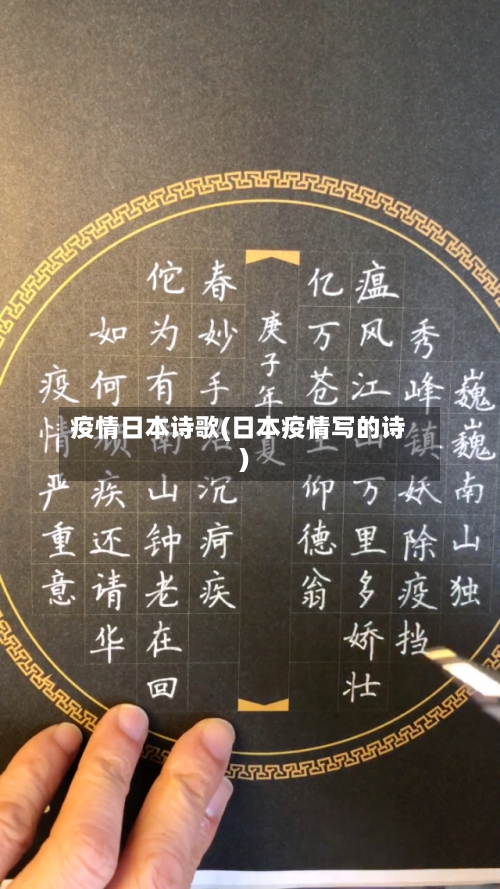 巍巍南山独
秀峰镇妖除疫挡
瘟风江山万里多娇壮
亿万苍生仰德翁
庚子年夏
春妙手治沉疴疾
佗为有南山钟老在回
如何顽疾还请华
疫情严重意
疫情日本诗歌(日本疫情写的诗
)